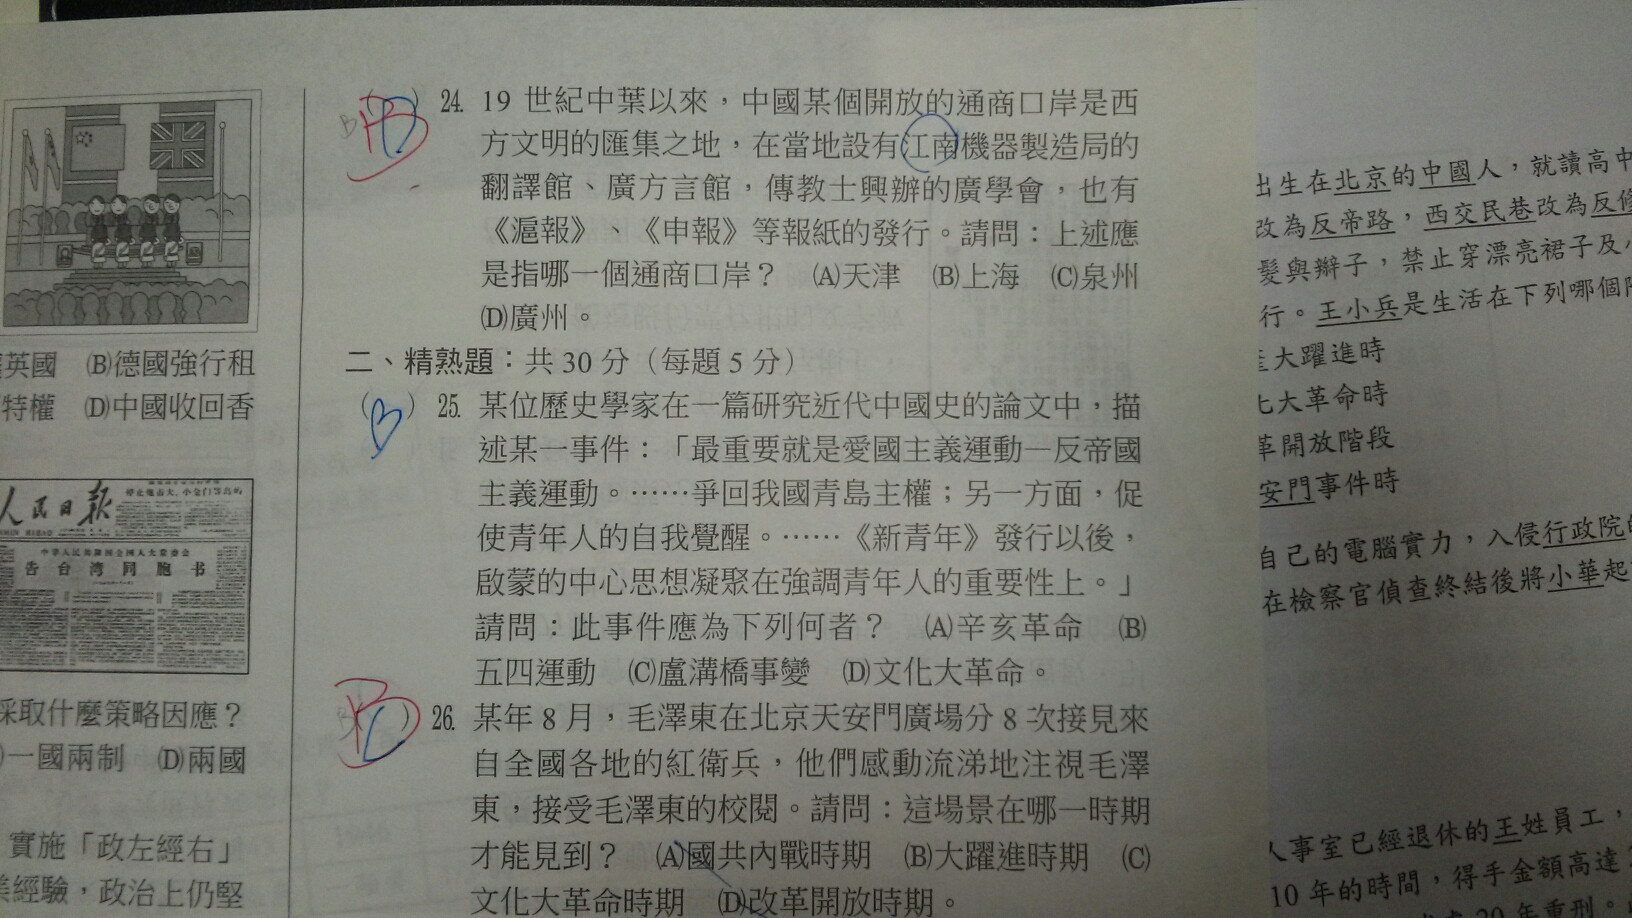 英國 (B)德國強行租
特權 (D)中國收回香
人民日报
中华人民共和国全国人大常委会
告台湾同胞书
採取什麼策略因應？
一國兩制 (D)兩國
實施「政左經右」
經驗，政治上仍堅
B
( B ) 24. 19 世紀中葉以來，中國某個開放的通商口岸是西
方文明的匯集之地，在當地設有江南機器製造局的
翻譯館、廣方言館，傳教士興辦的廣學會，也有
《滬報》、《申報》等報紙的發行。請問：上述應
是指哪一個通商口岸？ (A)天津 (B)上海 (C)泉州
(D)廣州。
二、精熟題：共 30 分（每題 5 分）
( B ) 25. 某位歷史學家在一篇研究近代中國史的論文中，描
述某一事件：「最重要就是愛國主義運動—反帝國
主義運動。……爭回我國青島主權；另一方面，促
使青年人的自我覺醒。……《新青年》發行以後，
啟蒙的中心思想凝聚在強調青年人的重要性上。」
請問：此事件應為下列何者？ (A)辛亥革命 (B)
五四運動 (C)盧溝橋事變 (D)文化大革命。
( C ) 26. 某年 8 月，毛澤東在北京天安門廣場分 8 次接見來
自全國各地的紅衛兵，他們感動流涕地注視毛澤
東，接受毛澤東的校閱。請問：這場景在哪一時期
才能見到？ (A)國共內戰時期 (B)大躍進時期 (C)
文化大革命時期 (D)改革開放時期。
出生在北京的中國人，就讀高中
改為反帝路，西交民巷改為反修
髮與辮子，禁止穿漂亮裙子及
行。王小兵是生活在下列哪個
大躍進時
大革命時
革開放階段
安門事件時
自己的電腦實力，入侵行政院
在檢察官偵查終結後將小華起
人事室已經退休的王姓員工，
10 年的時間，得手金額高達
20 年重刑。